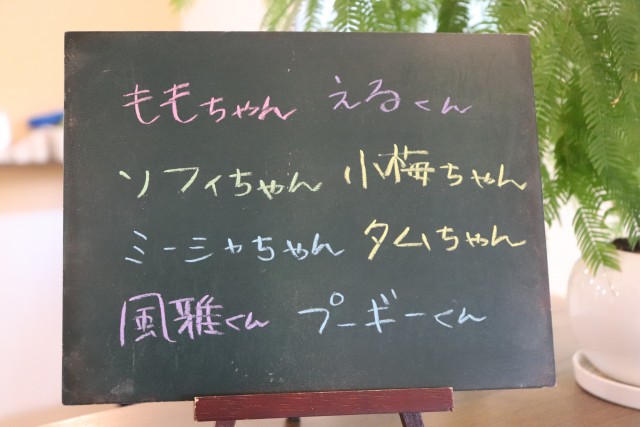 ももちゃん えるくん
ソフィちゃん 小梅ちゃん
ミーシャちゃん タムちゃん
風雅くん プーギーくん